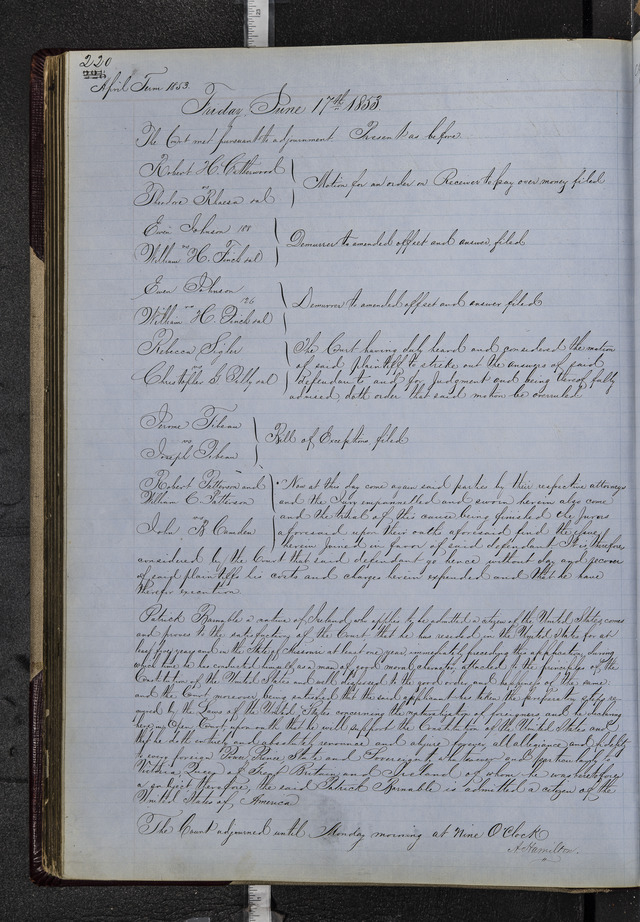 220
April Term 1853.
Friday June 17th 1853
The Court met pursuant to adjournment. Present as before
Robert H.
vs Motion for an order on Receiver to pay over money filed
Theodore et al
Ewen Johnson
vs Demurrer to amended offset and answer filed
William H. Finch et al
Ewen Johnson 126
vs Demurrer to amended offset and answer filed
William H. Finch et al
Rebecca Sigler The Court having duly heard and considered the motion
vs of said plaintiff to strike out the answers of said
Christopher et al defendants and for Judgment and being thereof fully
advised, doth order that said motion be overruled
Jerome
vs Bill of Exceptions filed
Joseph
Robert Patterson and Now at this day come again said parties by their respective attorneys
William C. Patterson and the Jury empannelled and sworn herein also come
vs and the trial of this cause being finished the Jurors
John Camden aforesaid upon their oaths aforesaid find the issue
herein joined in favor of said defendant It is therefore
considered by the Court that said defendant go hence without day and recover
of said plaintiffs his costs and charges herein expended and that he have
therefor execution.
Patrick a native of Ireland, who applies to be admitted a citizen of the United States, comes
and proves to the satisfaction of the Court that he has resided in the United States for at
least five years and in the State of Missouri at least one year, immediately preceding this application, during
which time he has conducted himself as a man of good moral character attached to the principles of the
Constitution of the United States and well disposed to the good order and happiness of the same
and the Court moreover being satisfied that the said applicant has taken the preparatory steps re-
quired by the Laws of the United States concerning the naturalization of foreigners and he declaring
here in Open Court upon oath that he will support the Constitution of the United States and
that he doth entirely and absolutely renounce and abjure forever all allegiance and fidelity
to every foreign Power, Prince State and Sovereignty whatsoever and particularly to
Victoria, Queen of Great Britain and Ireland of whom he was heretofore
a subject therefore, the said Patrick is admitted a citizen of the
United States of America
The Court adjourned until Monday morning at Nine O'Clock
A Hamilton.